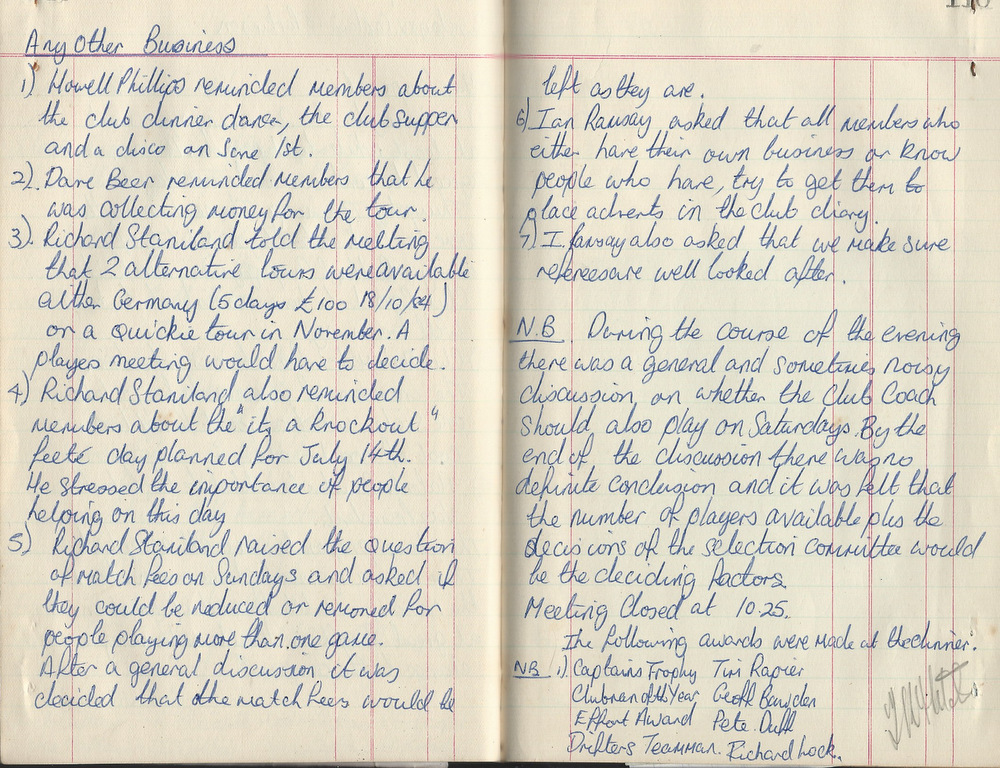 Any Other Business
1) Howell Phillips reminded members about
the club dinner dance, the club supper
and a disco on June 1st.
2). Dave Beer reminded members that he
was collecting money for the tour.
3). Richard Staniland told the meeting
that 2 alternative tours were available
either Germany (5 days £100 18/10/84)
or a quickie tour in November. A
players meeting would have to decide.
4) Richard Staniland also reminded
members about the "its a knockout"
feete day planned for July 14th.
He stressed the importance of people
helping on this day
5) Richard Staniland raised the question
of match fees on Sundays and asked if
they could be reduced or removed for
people playing more than one game.
After a general discussion it was
decided that the match fees would be
110
left as they are.
6) Ian Ramsay asked that all members who
either have their own business or know
people who have, try to get them to
place adverts in the club diary.
7) I. Ramsay also asked, that we make sure
referees are well looked after.
N.B During the course of the evening
there was a general and sometimes noisy
discussion on whether the Club Coach
should also play on Saturdays. By the
end of the discussion there was no
definite conclusion and it was felt that
the number of players available plus the
decisions of the selection committee would
be the deciding factors
Meeting Closed at 10.25.
The following awards were made at the dinner:
NB 1) Captains Trophy Tim Rapier
Clubman of the Year Geoff
Effort Award Pete Duff
Drifters Teamman. Richard Lock.